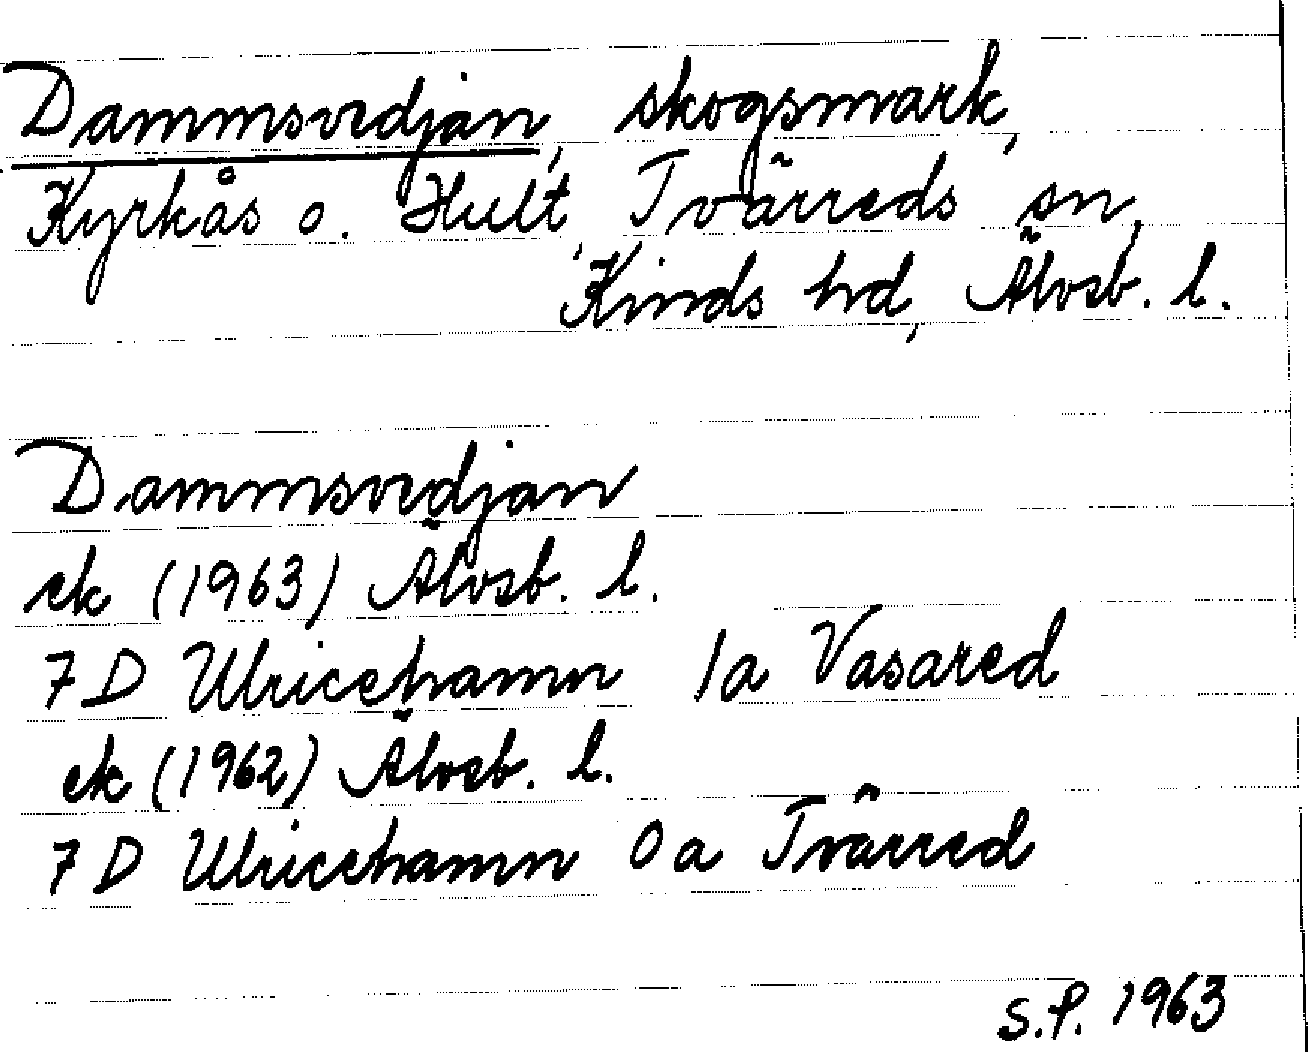 Dammsvedjan, skogsmark,
Kyrkås o. Hult, Tvärreds sn,
Kinds hd, Älvsb. l.
Dammsvedjan
ek (1963) Älvsb. l.
7D Ulricehamn 1a Vasared
ek (1962) Älvsb. l.
7D Ulricehamn 0a Tvärred
S.P. 1963